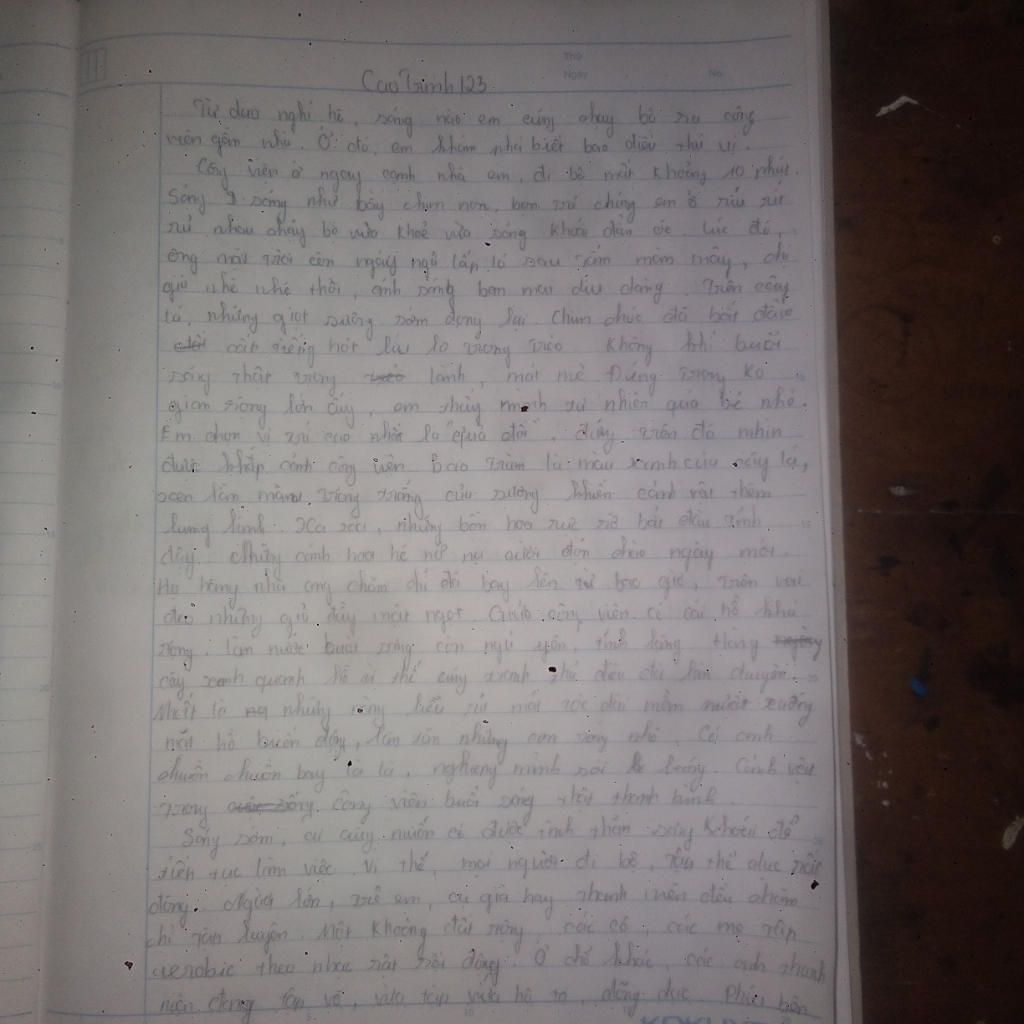 Thứ
Ngày No.
Cao Trinh 123
Từ dạo nghỉ hè, sáng nào em cũng chạy bộ ra công
viên gần nhà. Ở đó, em khám phá biết bao điều thú vị.
Công viên ở ngay cạnh nhà em, đi bộ mất khoảng 10 phút.
Sáng sáng như bầy chim non, bọn trẻ chúng em ríu rít
rủ nhau chạy bộ vừa khoẻ vừa sảng khoái đầu óc. Lúc đó,
ông mặt trời còn ngái ngủ lấp ló sau rám mâm mây, chị
gió nhè nhẹ thổi, ánh sáng ban mai dịu dàng. Trên cây
lá, những giọt sương sớm đọng lại. Chim chóc đã bắt đầu
cất tiếng hót líu lo trong trẻo. Không khí buổi
sáng thật trong lành, mát mẻ. Đứng trong kô
gian rộng lớn ấy, em thấy mình tự nhiên quá bé nhỏ.
Em chọn vị trí cao nhất là "quả đồi", đứng trên đó nhìn
được khắp cảnh công viên. Bao trùm là màu xanh của cây lá,
xen lẫn màu trắng của sương khiến cảnh vật thêm
lung linh. Xa xa, những bồn hoa rực rỡ bắt đầu tỉnh
dậy. Những cánh hoa hé nở nụ cười đón chào ngày mới.
Họ hàng nhà ong chăm chỉ đã bay lên từ bao giờ, trên vai
đeo những giỏ đầy mật ngọt. Giữa công viên có cái hồ khá
rộng. Làn nước buổi sáng còn ngủ yên, tĩnh lặng. Hàng
cây xanh quanh hồ vì thế cũng tranh thủ điệu đà làm duyên.
Nhất là những rặng liễu rủ mái tóc dài mềm mượt xuống
mặt hồ lay động, lăn tăn những con sóng nhỏ. Có anh
chuồn chuồn bay la là, nghiêng mình soi bóng. Cảnh vật
trong công viên buổi sáng thật thanh bình.
Sáng sớm, ai cũng muốn có được tinh thần sảng khoái để
tiếp tục làm việc. Vì thế, mọi người đi bộ, tập thể dục rất
đông. Người lớn, trẻ em, cụ già hay thanh niên đều chăm
chỉ rèn luyện. Một khoảng đất rộng, các cô, các mẹ tập
aerobic theo nhạc rất sôi động. Ở chỗ khác, các anh thanh
niên đang tập võ, vừa tập vừa hô to, dõng dạc. Phía bên